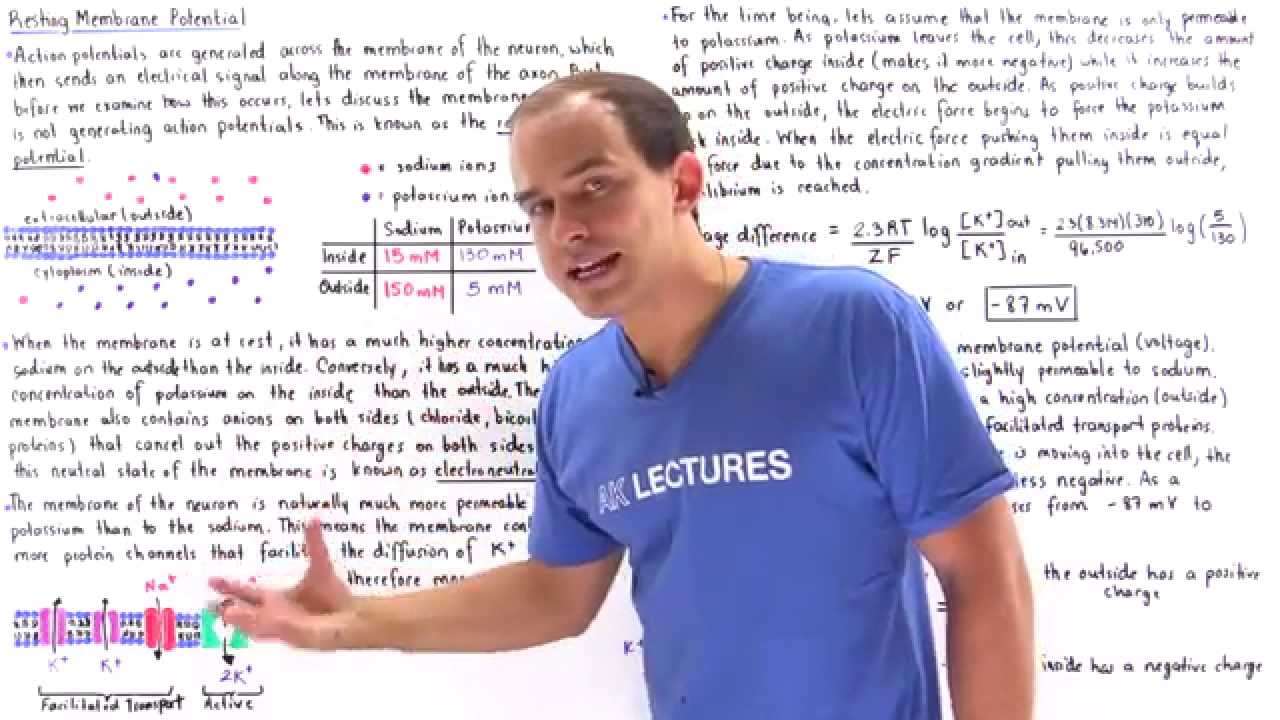 Resting Membrane Potential
•Action potentials are generated across the membrane of the neuron, which
then sends an electrical signal along the membrane of the axon.
before we examine how this occurs, lets discuss the membrane
is not generating action potentials. This is known as the
potential.
• = sodium ions
• = potassium ions
extracellular (outside)
cytoplasm (inside)
Sodium Potassiu
Inside 15 mM 130 mM
Outside 150 mM 5 mM
•When the membrane is at rest, it has a much higher concentration
sodium on the outside than the inside. Conversely, it has a much
concentration of potassium on the inside than the outside. The
membrane also contains anions on both sides (chloride,
proteins) that cancel out the positive charges on both sides
this neutral state of the membrane is known as electroneutral
•The membrane of the neuron is naturally much more permeable
potassium than to the sodium. This means the membrane
more protein channels that the diffusion of K+
therefore
Na+
K+ K+ 2K+
Facilitated Transport Active
•For the time being, lets assume that the membrane is only permeable
to potassium. As potassium leaves the cell, this decreases the amount
of positive charge inside (makes it more negative) while it increases the
amount of positive charge on the outside. As positive charge builds
on the outside, the electric force begins to force the potassium
inside. When the electric force pushing them inside is equal
force due to the concentration gradient pulling them outside,
librium is reached.
age difference = 2.3RT/ZF log [K+]out/[K+]in = 2.3(8.314)(310)/96,500 log(5/130)
V or -87 mV
membrane potential (voltage).
slightly permeable to sodium.
a high concentration (outside)
facilitated transport proteins.
is moving into the cell, the
less negative. As a
from -87 mV to
= the outside has a positive
charge
K+
inside has a negative charge
AK LECTURES